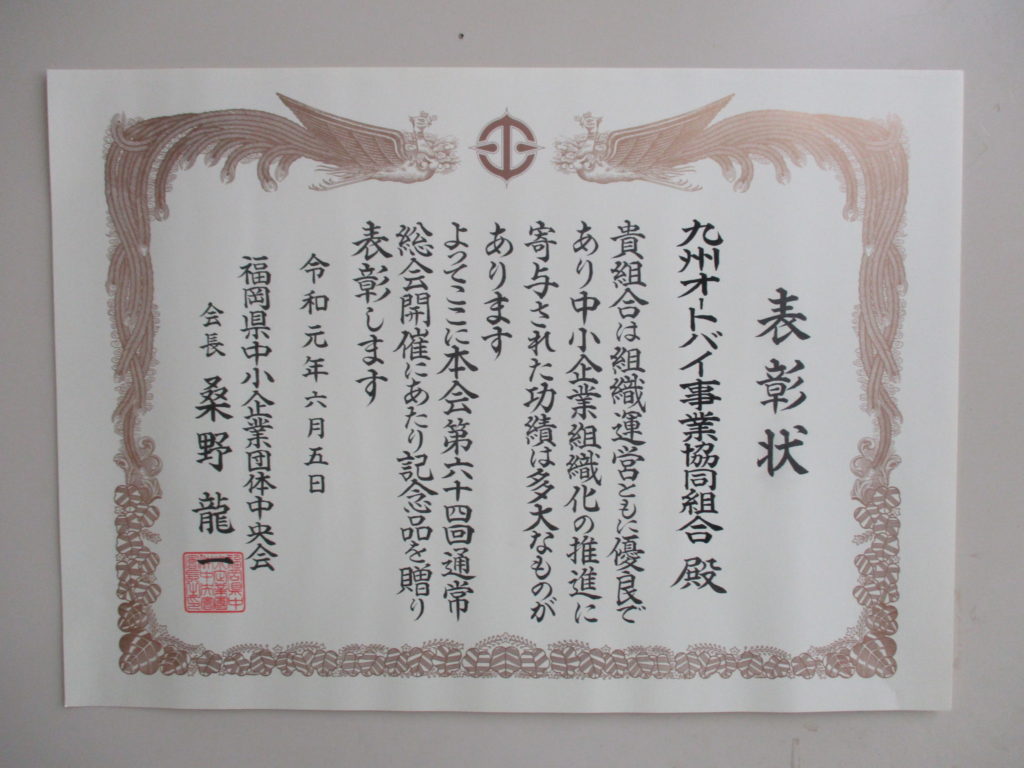 表彰状
九州オートバイ事業協同組合 殿
貴組合は組織運営ともに優良で
あり中小企業組織化の推進に
寄与された功績は多大なものが
あります
よってここに本会第六十四回通常
総会開催にあたり記念品を贈り
表彰します
令和元年六月五日
福岡県中小企業団体中央会
会長 桑野龍一